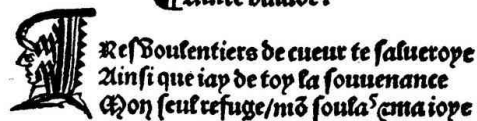 Autre ballade.
TResvoulentiers de cueur te salueroye
Ainsi que iay de toy la souuenance
Mon seul refuge/mõ soulaˢ ⁊ma ioye